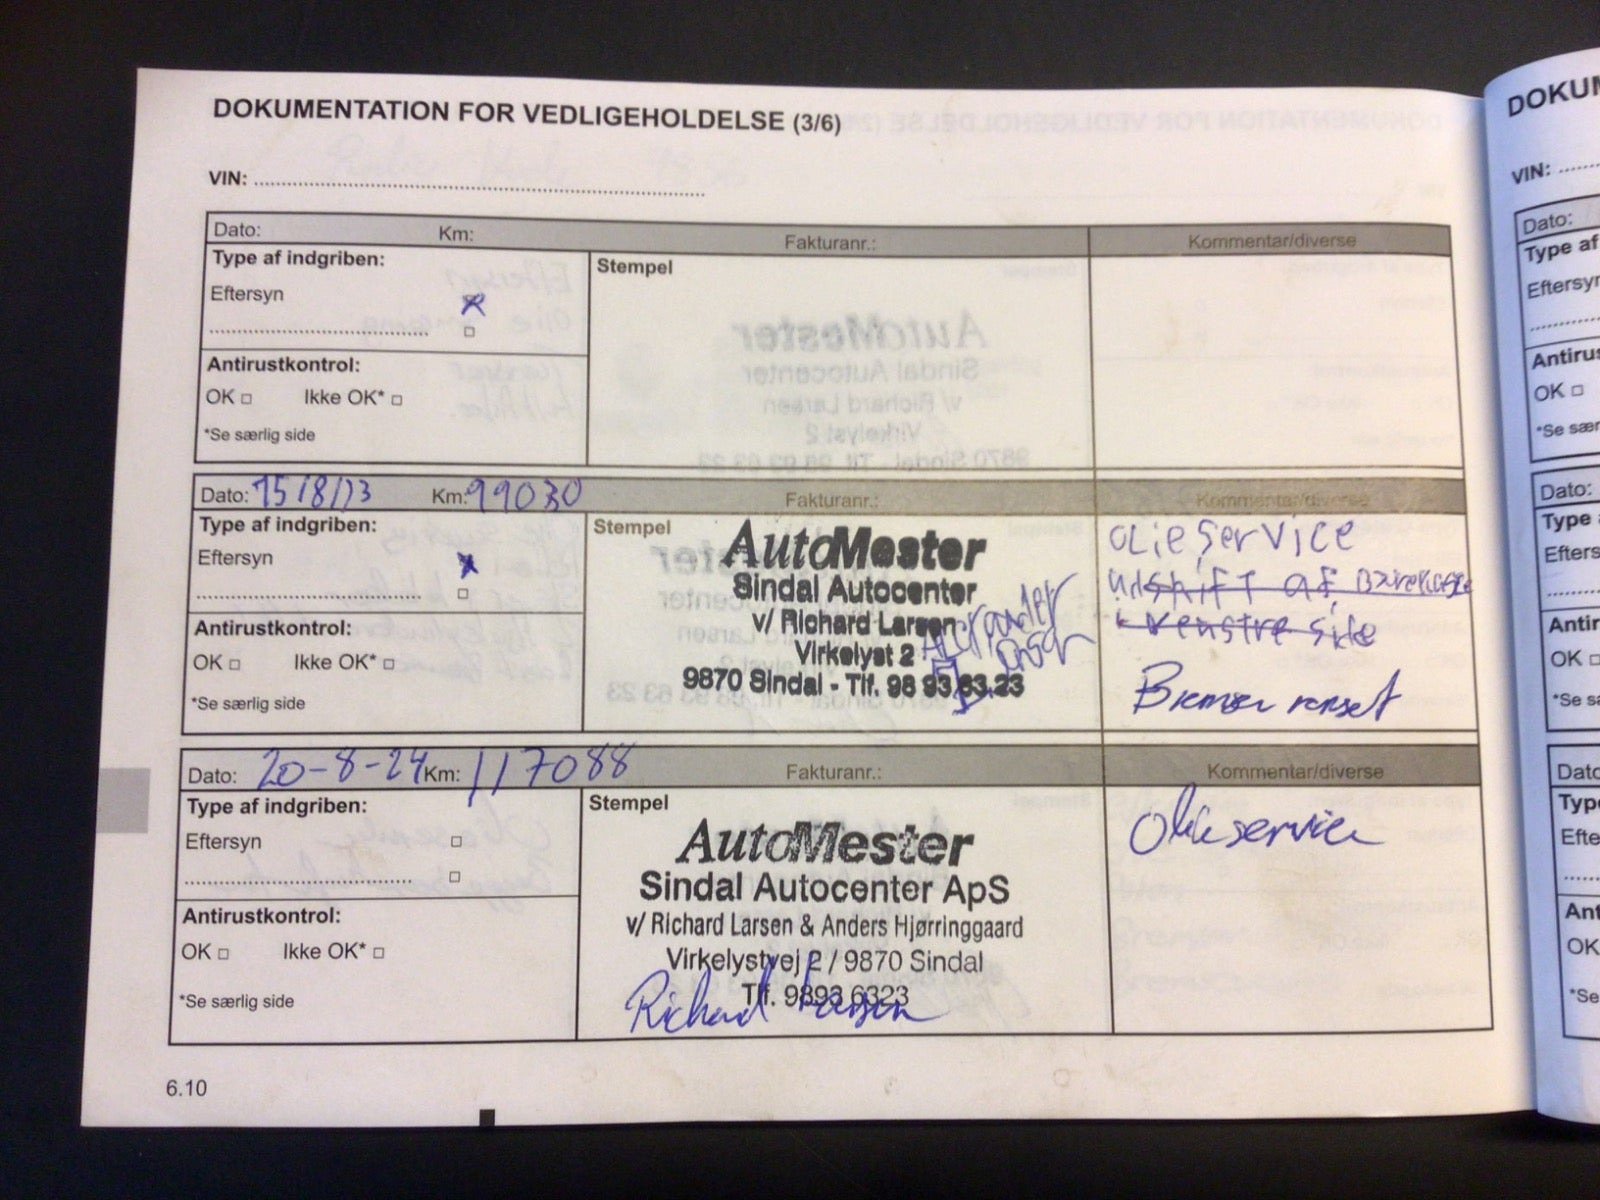 DOKUMENTATION FOR VEDLIGEHOLDELSE (3/6)
VIN:
Dato: Km: Fakturanr.: Kommentar/diverse
Type af indgriben:
Stempel
Eftersyn
Antirustkontrol:
OK Ikke OK*
*Se særlig side
Dato: 15/8/23 Km: 99030 Fakturanr.: Kommentar/diverse
Type af indgriben:
Eftersyn
Antirustkontrol:
OK Ikke OK*
*Se særlig side
Stempel
AutoMester
Sindal Autocenter
v/ Richard Larsen
Virkelyst 2
9870 Sindal - Tlf. 98 93 63 23
OLieService
udskift af Bærekugle
venstre side
Bremser renset
Dato: 20-8-24 Km: 117088 Fakturanr.: Kommentar/diverse
Type af indgriben:
Eftersyn
Antirustkontrol:
OK Ikke OK*
*Se særlig side
Stempel
AutoMester
Sindal Autocenter ApS
v/ Richard Larsen & Anders Hjørringgaard
Virkelystvej 2 / 9870 Sindal
Tlf. 9893 6323
Richard Larsen
Olieservice
6.10
DOKUM
VIN:
Dato:
Type af
Eftersyn
Antirus
OK
*Se sær
Dato:
Type
Efters
Antir
OK
*Se sæ
Dato
Type
Efte
Ant
OK
*Se